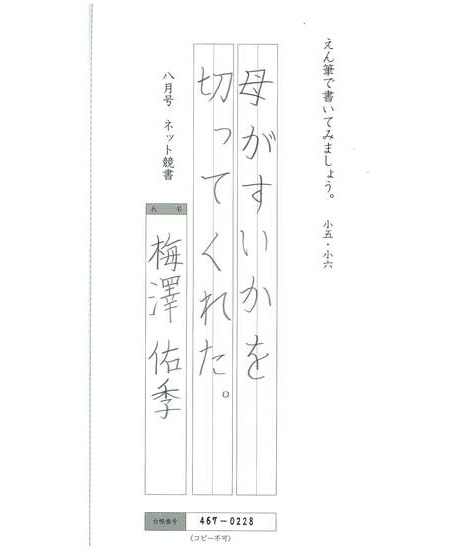 えん筆で書いてみましょう。 小五・小六
母がすいかを
切ってくれた。
八月号 ネット競書
氏名
梅澤佑季
台帳番号 467-0228
(コピー不可)